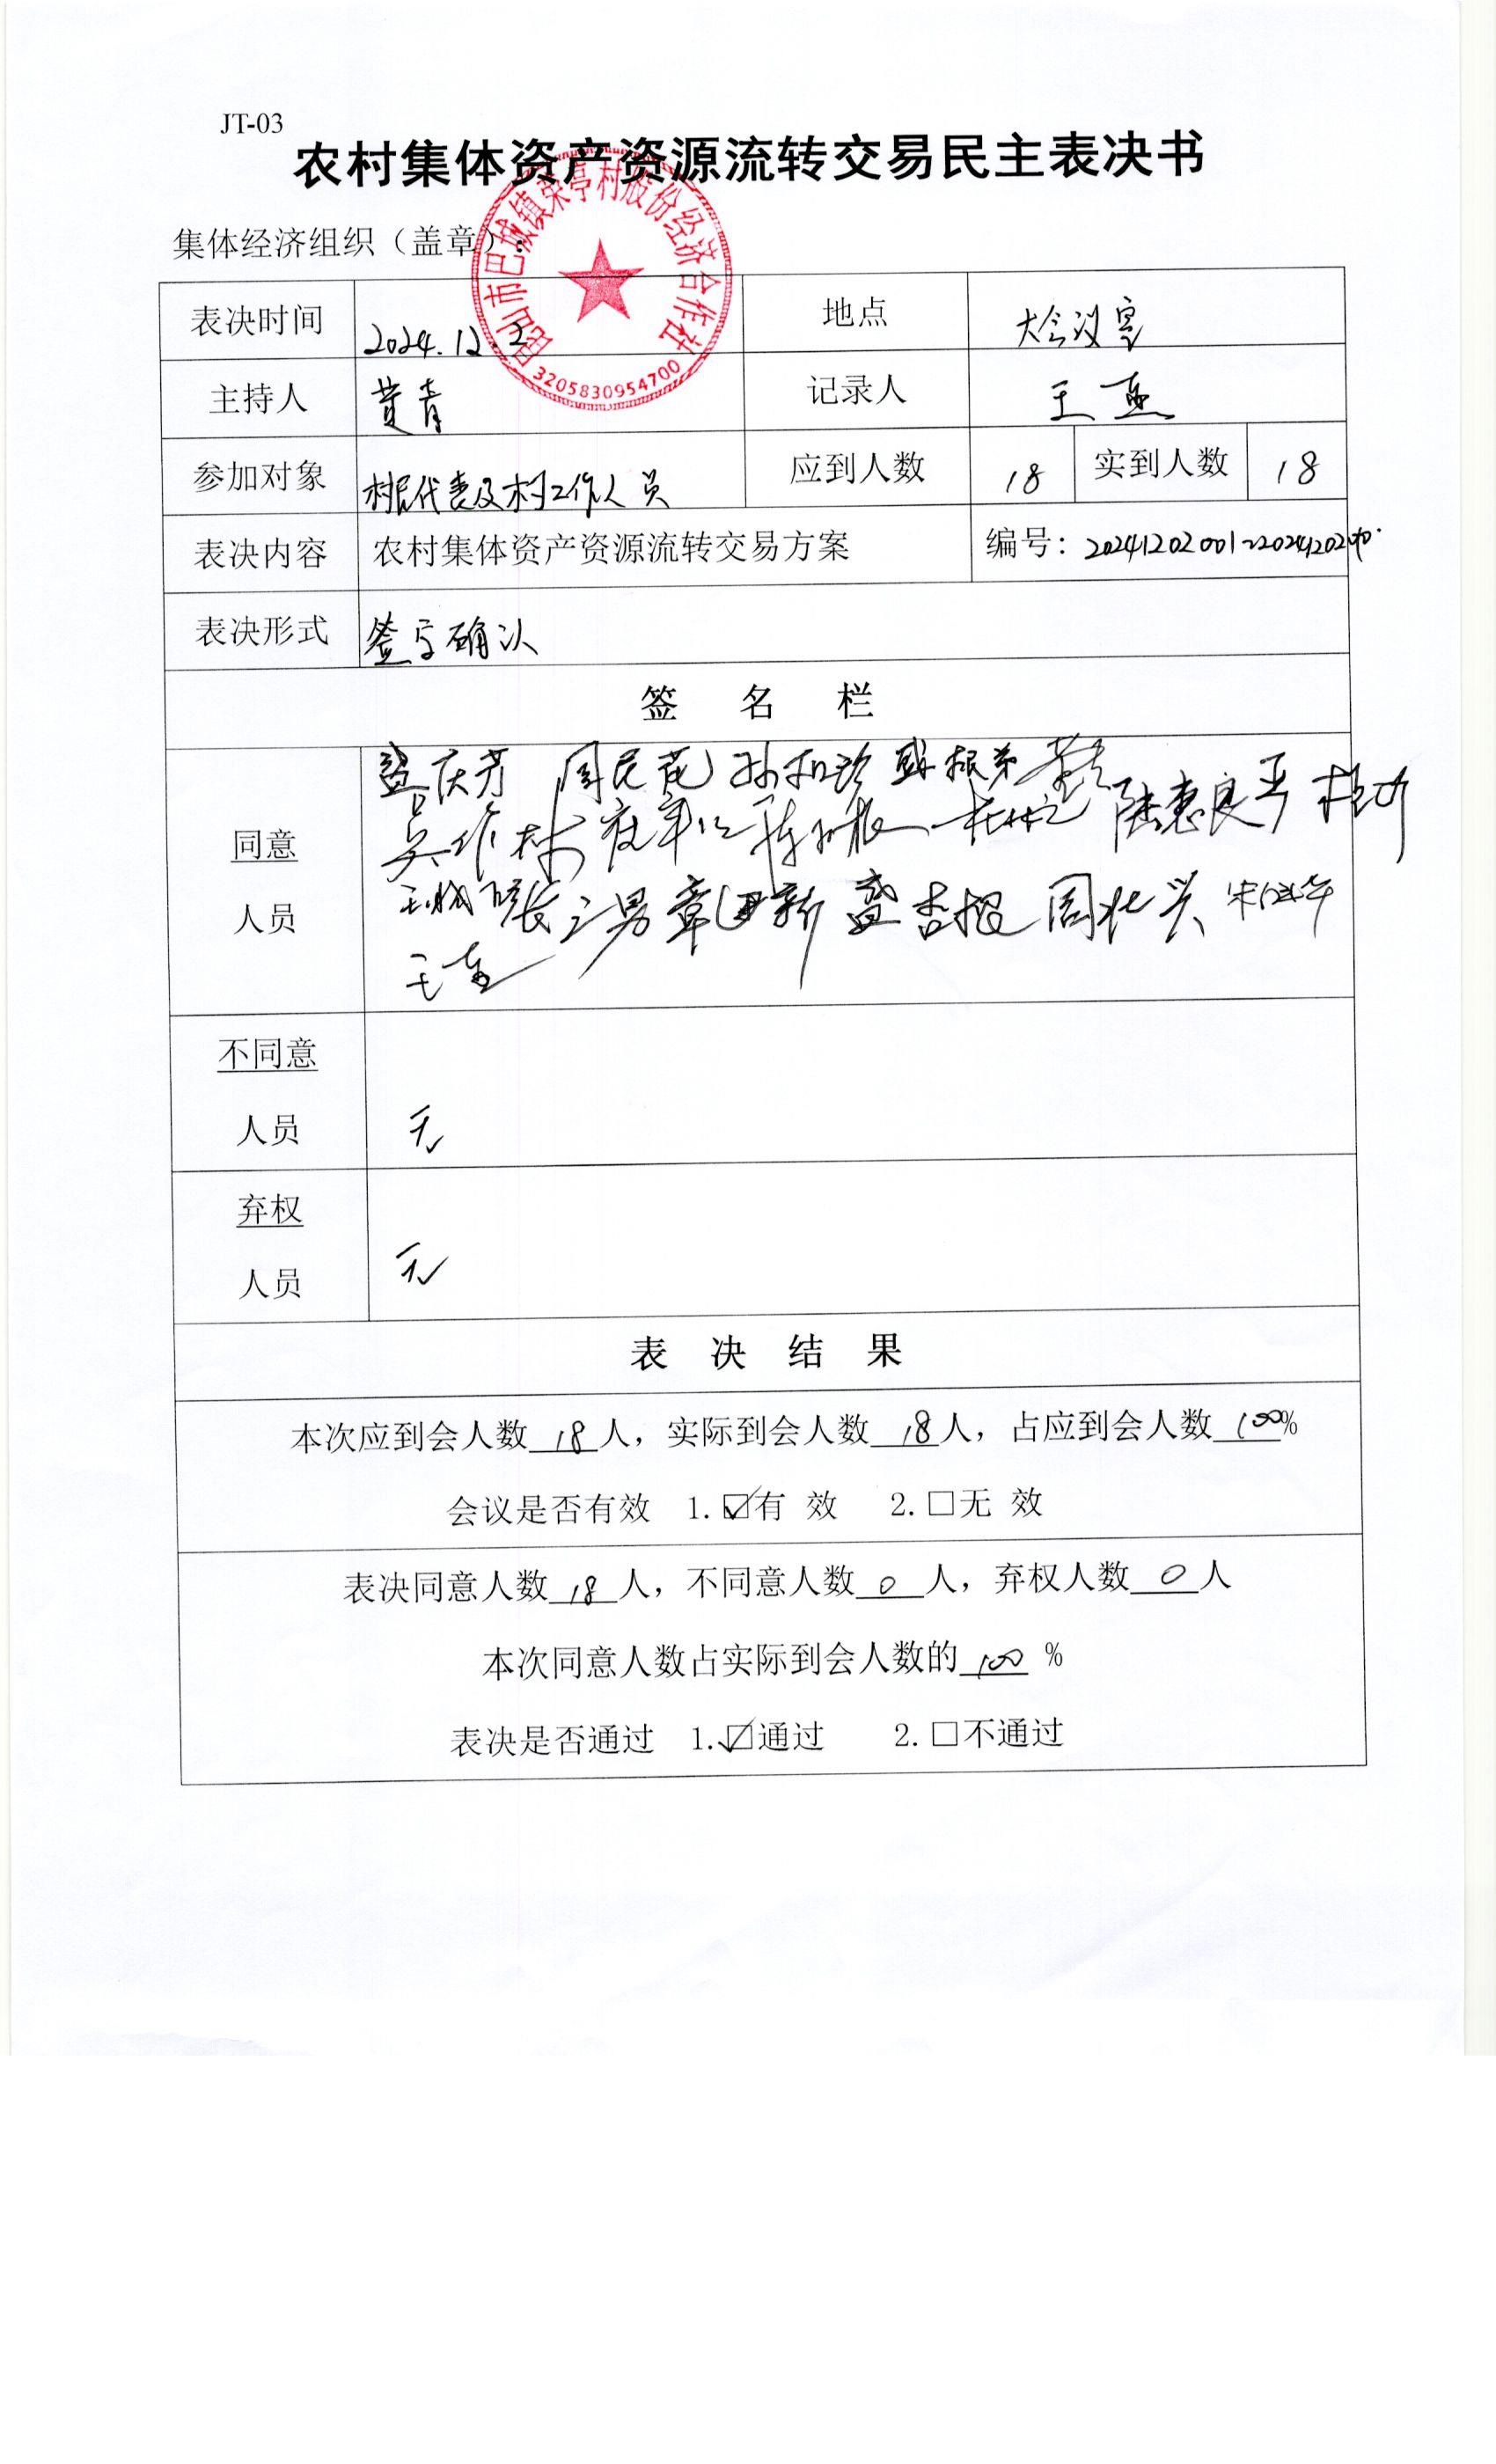 JT-03
农村集体资产资源流转交易民主表决书
集体经济组织（盖章）：
昆山市巴城镇荣亭村股份经济合作社
3205830954700
表决时间 2024.12.2 地点 大会议室
主持人 黄青 记录人 王燕
参加对象 村民代表及村工作人员 应到人数 18 实到人数 18
表决内容 农村集体资产资源流转交易方案 编号：20241202001~20241202
表决形式 签字确认
签 名 栏
同意
人员
盛庆芳 周民花 孙和珍 盛根弟 黄青
陆惠良
盛杏根 周北兴
王燕
不同意
人员
无
弃权
人员
无
表 决 结 果
本次应到会人数 18 人，实际到会人数 18 人，占应到会人数 100%
会议是否有效 1.☑有 效 2.□无 效
表决同意人数 18 人，不同意人数 0 人，弃权人数 0 人
本次同意人数占实际到会人数的 100 %
表决是否通过 1.☑通过 2.□不通过